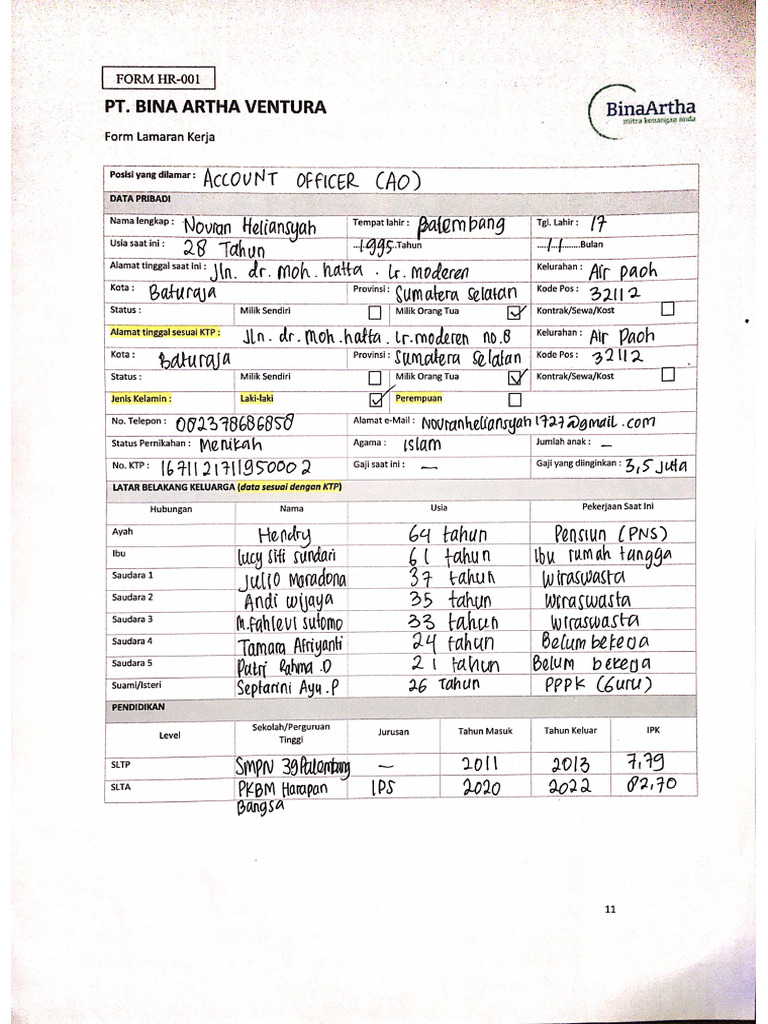 FORM HR-001
PT. BINA ARTHA VENTURA
BinaArtha
mitra keuangan anda
Form Lamaran Kerja
Posisi yang dilamar : ACCOUNT OFFICER (AO)
DATA PRIBADI
Nama lengkap : Novran Heliansyah Tempat lahir : Palembang Tgl. Lahir : 17
Usia saat ini : 28 Tahun ...1995.Tahun ....11........Bulan
Alamat tinggal saat ini : Jln. dr. moh. hatta . lr. moderen Kelurahan : Air paoh
Kota : Baturaja Provinsi : Sumatera Selatan Kode Pos : 32112
Status : Milik Sendiri ☐ Milik Orang Tua ☑ Kontrak/Sewa/Kost ☐
Alamat tinggal sesuai KTP : Jln. dr. moh. hatta. lr. moderen no.8 Kelurahan : Air Paoh
Kota : Baturaja Provinsi : Sumatera Selatan Kode Pos : 32112
Status : Milik Sendiri ☐ Milik Orang Tua ☑ Kontrak/Sewa/Kost ☐
Jenis Kelamin : Laki-laki ☑ Perempuan ☐
No. Telepon : 082378686858 Alamat e-Mail : Novranheliansyah1727@gmail.com
Status Pernikahan : Menikah Agama : islam Jumlah anak : —
No. KTP : 1671121711950002 Gaji saat ini : — Gaji yang diinginkan : 3,5 Juta
LATAR BELAKANG KELUARGA (data sesuai dengan KTP)
Hubungan Nama Usia Pekerjaan Saat Ini
Ayah Hendry 64 tahun Pensiun (PNS)
Ibu lucy siti sundari 61 tahun Ibu rumah tangga
Saudara 1 JULIO Maradona 37 tahun Wiraswasta
Saudara 2 Andi wijaya 35 tahun Wiraswasta
Saudara 3 M.fahlevi sutomo 33 tahun Wiraswasta
Saudara 4 Tamara Afriyanti 24 tahun Belum bekerja
Saudara 5 Putri Rahma .D 21 tahun Belum bekerja
Suami/Isteri Septarini Ayu .P 26 tahun PPPK (Guru)
PENDIDIKAN
Level Sekolah/Perguruan Tinggi Jurusan Tahun Masuk Tahun Keluar IPK
SLTP SMPN 39 Palembang — 2011 2013 7,79
SLTA PKBM Harapan Bangsa IPS 2020 2022 82,70
11